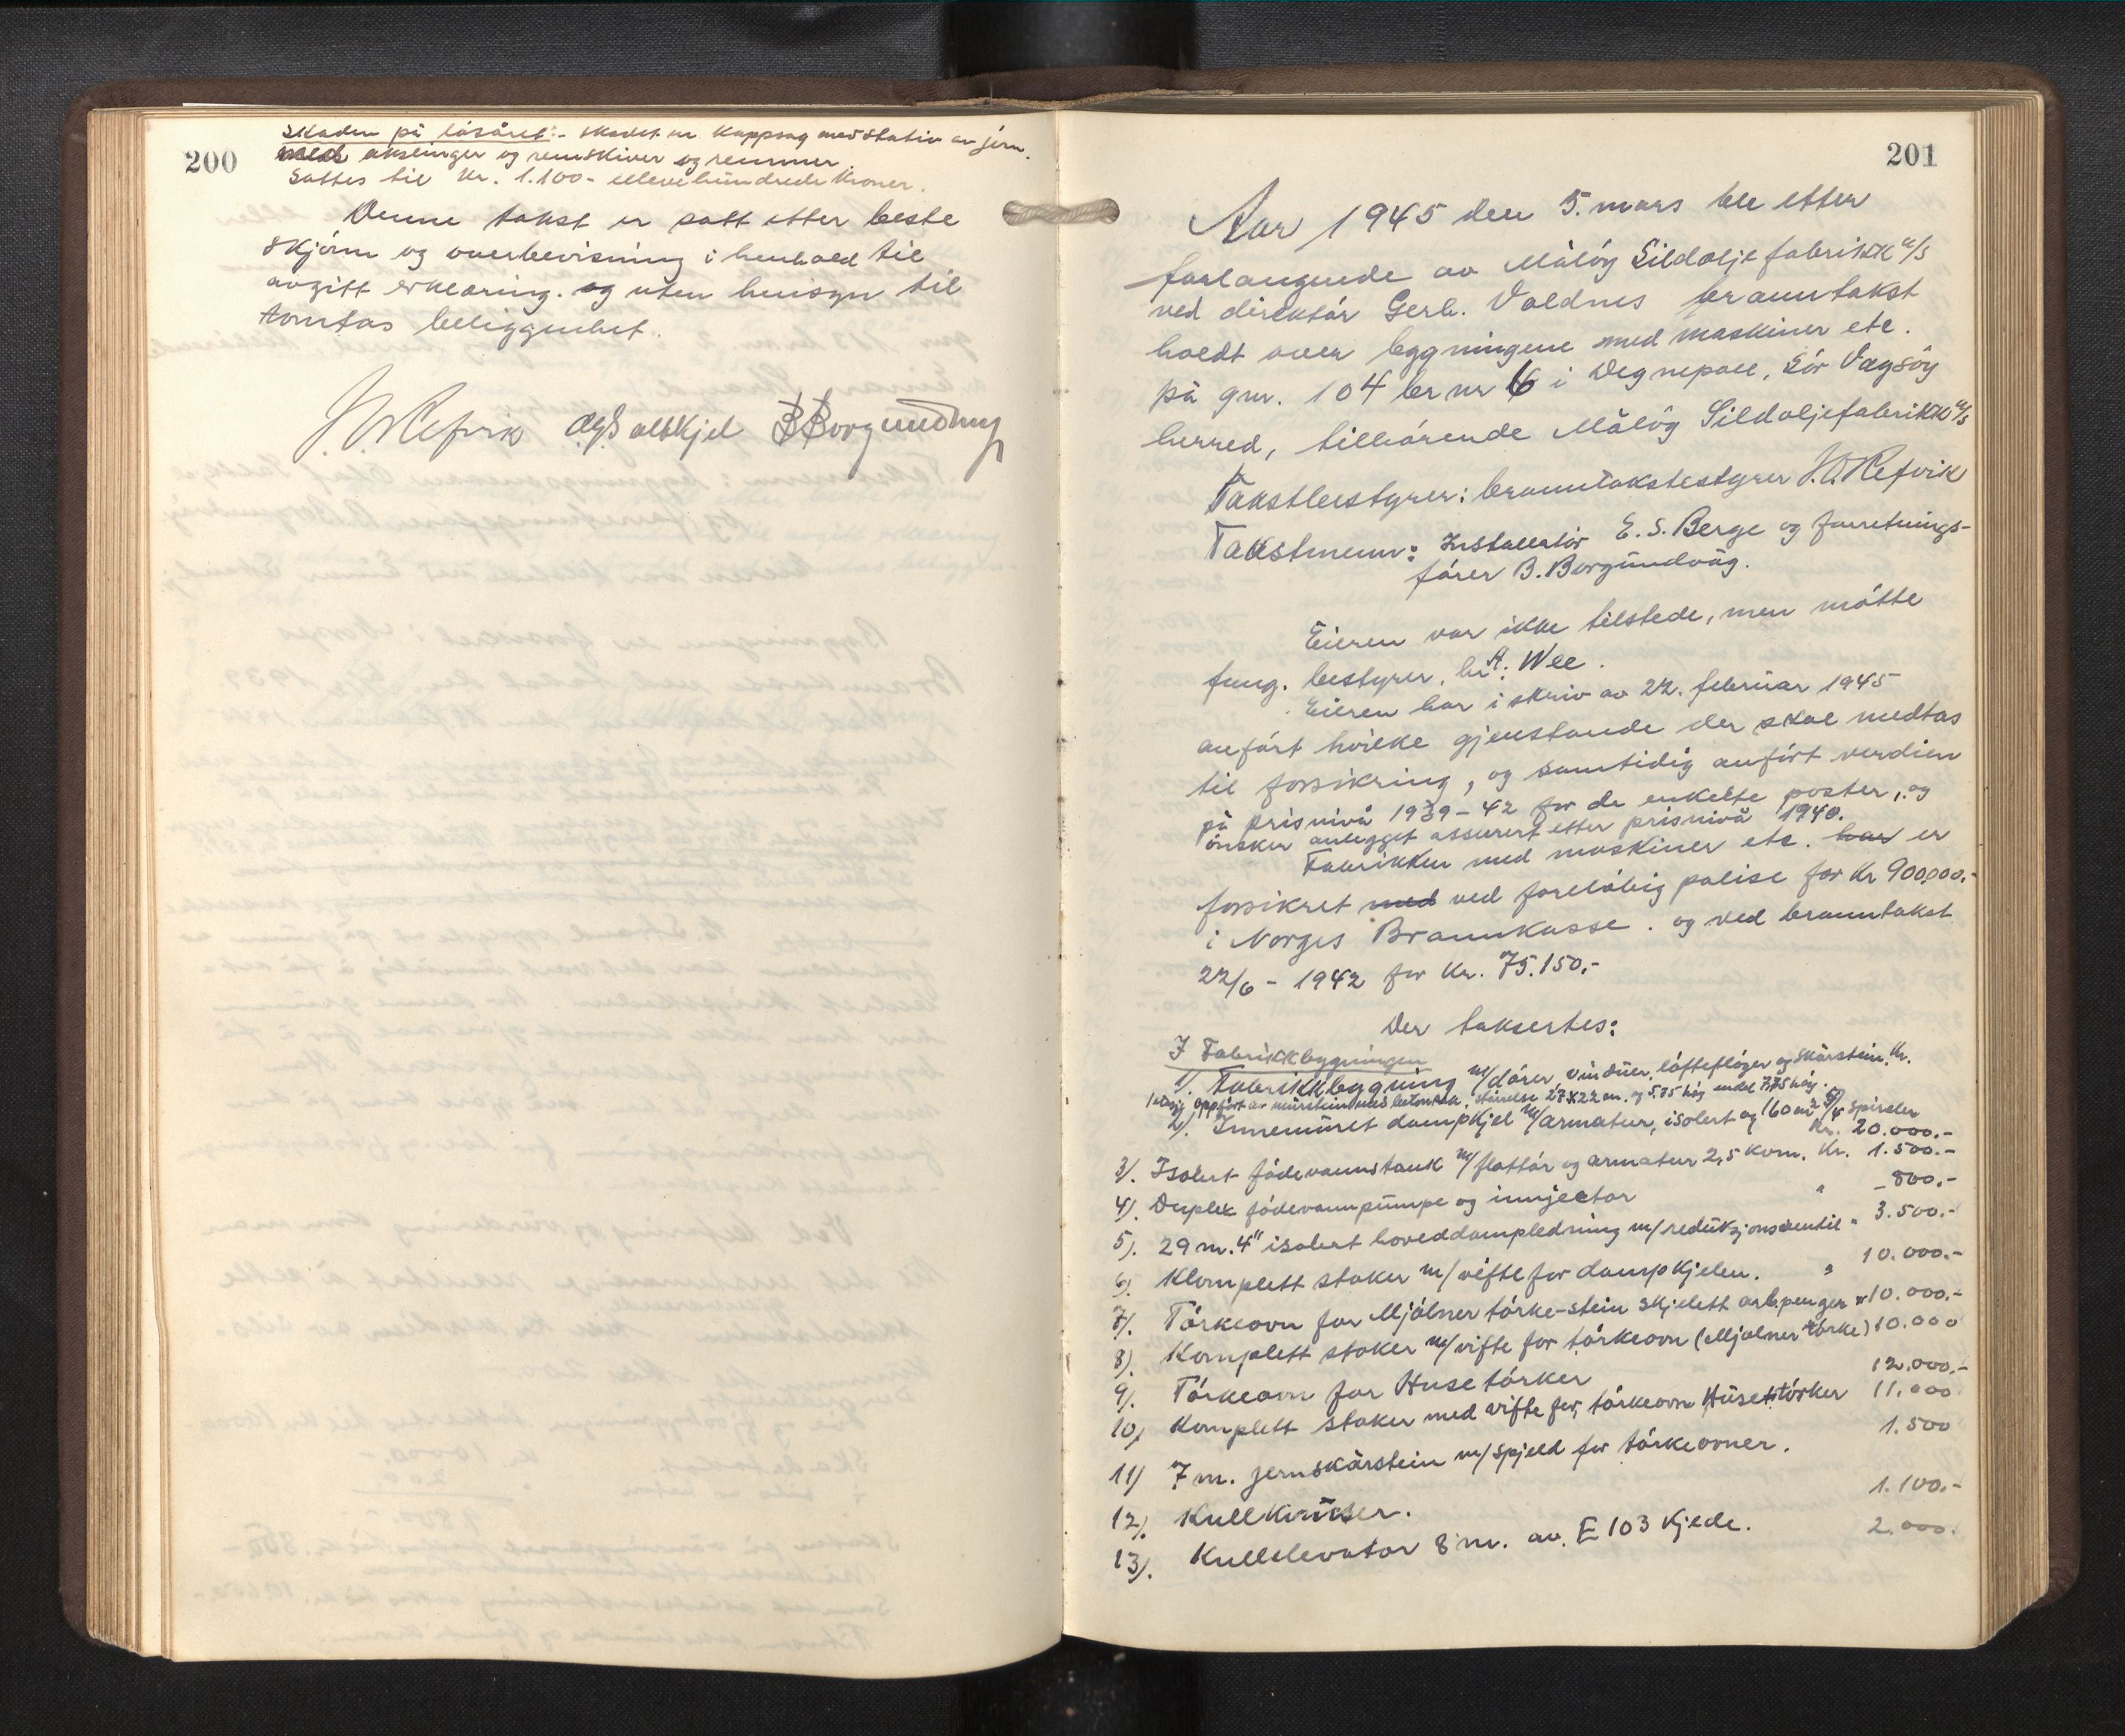 200
Skaden på løsøret:- skadet en kappsag med stativ av jern.
med akslinger og remskiver og remmer.
Sattes til kr. 1.100- ellevehundrede kroner.
Denne takst er satt etter beste
skjønn og overbevisning i henhold til
avgitt erklæring. og uten hensyn til
tomtas beliggenhet.
J.O. Refvik Saltskjel B Borgundvåg
201
Aar 1945 den 5. mars ble etter
forlangende av Måløy Sildoljefabrikk a/s
ved direktør Gerh. Voldnes branntakst
holdt over bygningene med maskiner etc.
på gnr. 104 br nr 6 i Degnepoll, Sør Vågsøy
herred, tilhørende Måløy Sildoljefabrikk a/s
Takstbestyrer: branntakstbestyrer J.O. Refvik
Takstmenn: Installatør E. S. Berge og forretnings-
fører B. Borgundvåg.
Eieren var ikke tilstede, men møtte
fung. bestyrer, hr. A. Wee.
Eieren har i skriv av 22. februar 1945
anført hvilke gjenstande der skal medtas
til forsikring, og samtidig anført verdien
på prisnivå 1939-42 for de enkelte poster, og
ønsker anlegget assurert etter prisnivå 1940.
Fabrikken med maskiner etc. har er
forsikret med ved foreløbig polise for Kr 900,000.-
i Norges Brannkasse. og ved branntakst
22/6 - 1942 for kr. 75.150,-
Der taksertes:
I Fabrikkbygningen
1). Fabrikkbygning m/dører, vinduer, lófteflóger og skorstein. Kr.
1 etasje, oppført av mürstein med betontak, størrelse 27x22 m. og 5.75 høg endel 7,75 høg.
2). Innemüret dampkjel m/armatur, isolert og 160 m² 5/4 spiraler
Kr. 20.000.-
3). Isolert fødevannstank m/flottør og armatur 2,5 kbm. Kr. 1.500.-
4). Duplex fødevannpumpe og innjector " - 800.-
5). 29 m. 4" isolert hoveddampledning m/reduksjonsventil " 3.500.-
6). Klomplett stoker m/vifte for dampkjelen. " 10.000.-
7). Tørkeovn for Mjølner tørke-stein skjelett arb.penger " 10.000.-
8). Komplett stoker m/vifte for tørkeovn (Mjølner tørke) 10.000
9). Tørkeovn for Huse tørker 12.000.-
10) Komplett stoker med vifte for tørkeovn Huse tørker 11.000
11) 7 m. jernskorstein m/spjeld for tørkeovner. 1.500
12). Kullknuser. 1.100.-
13). Kullelevator 8 m. av. E 103 kjede. 2.000.